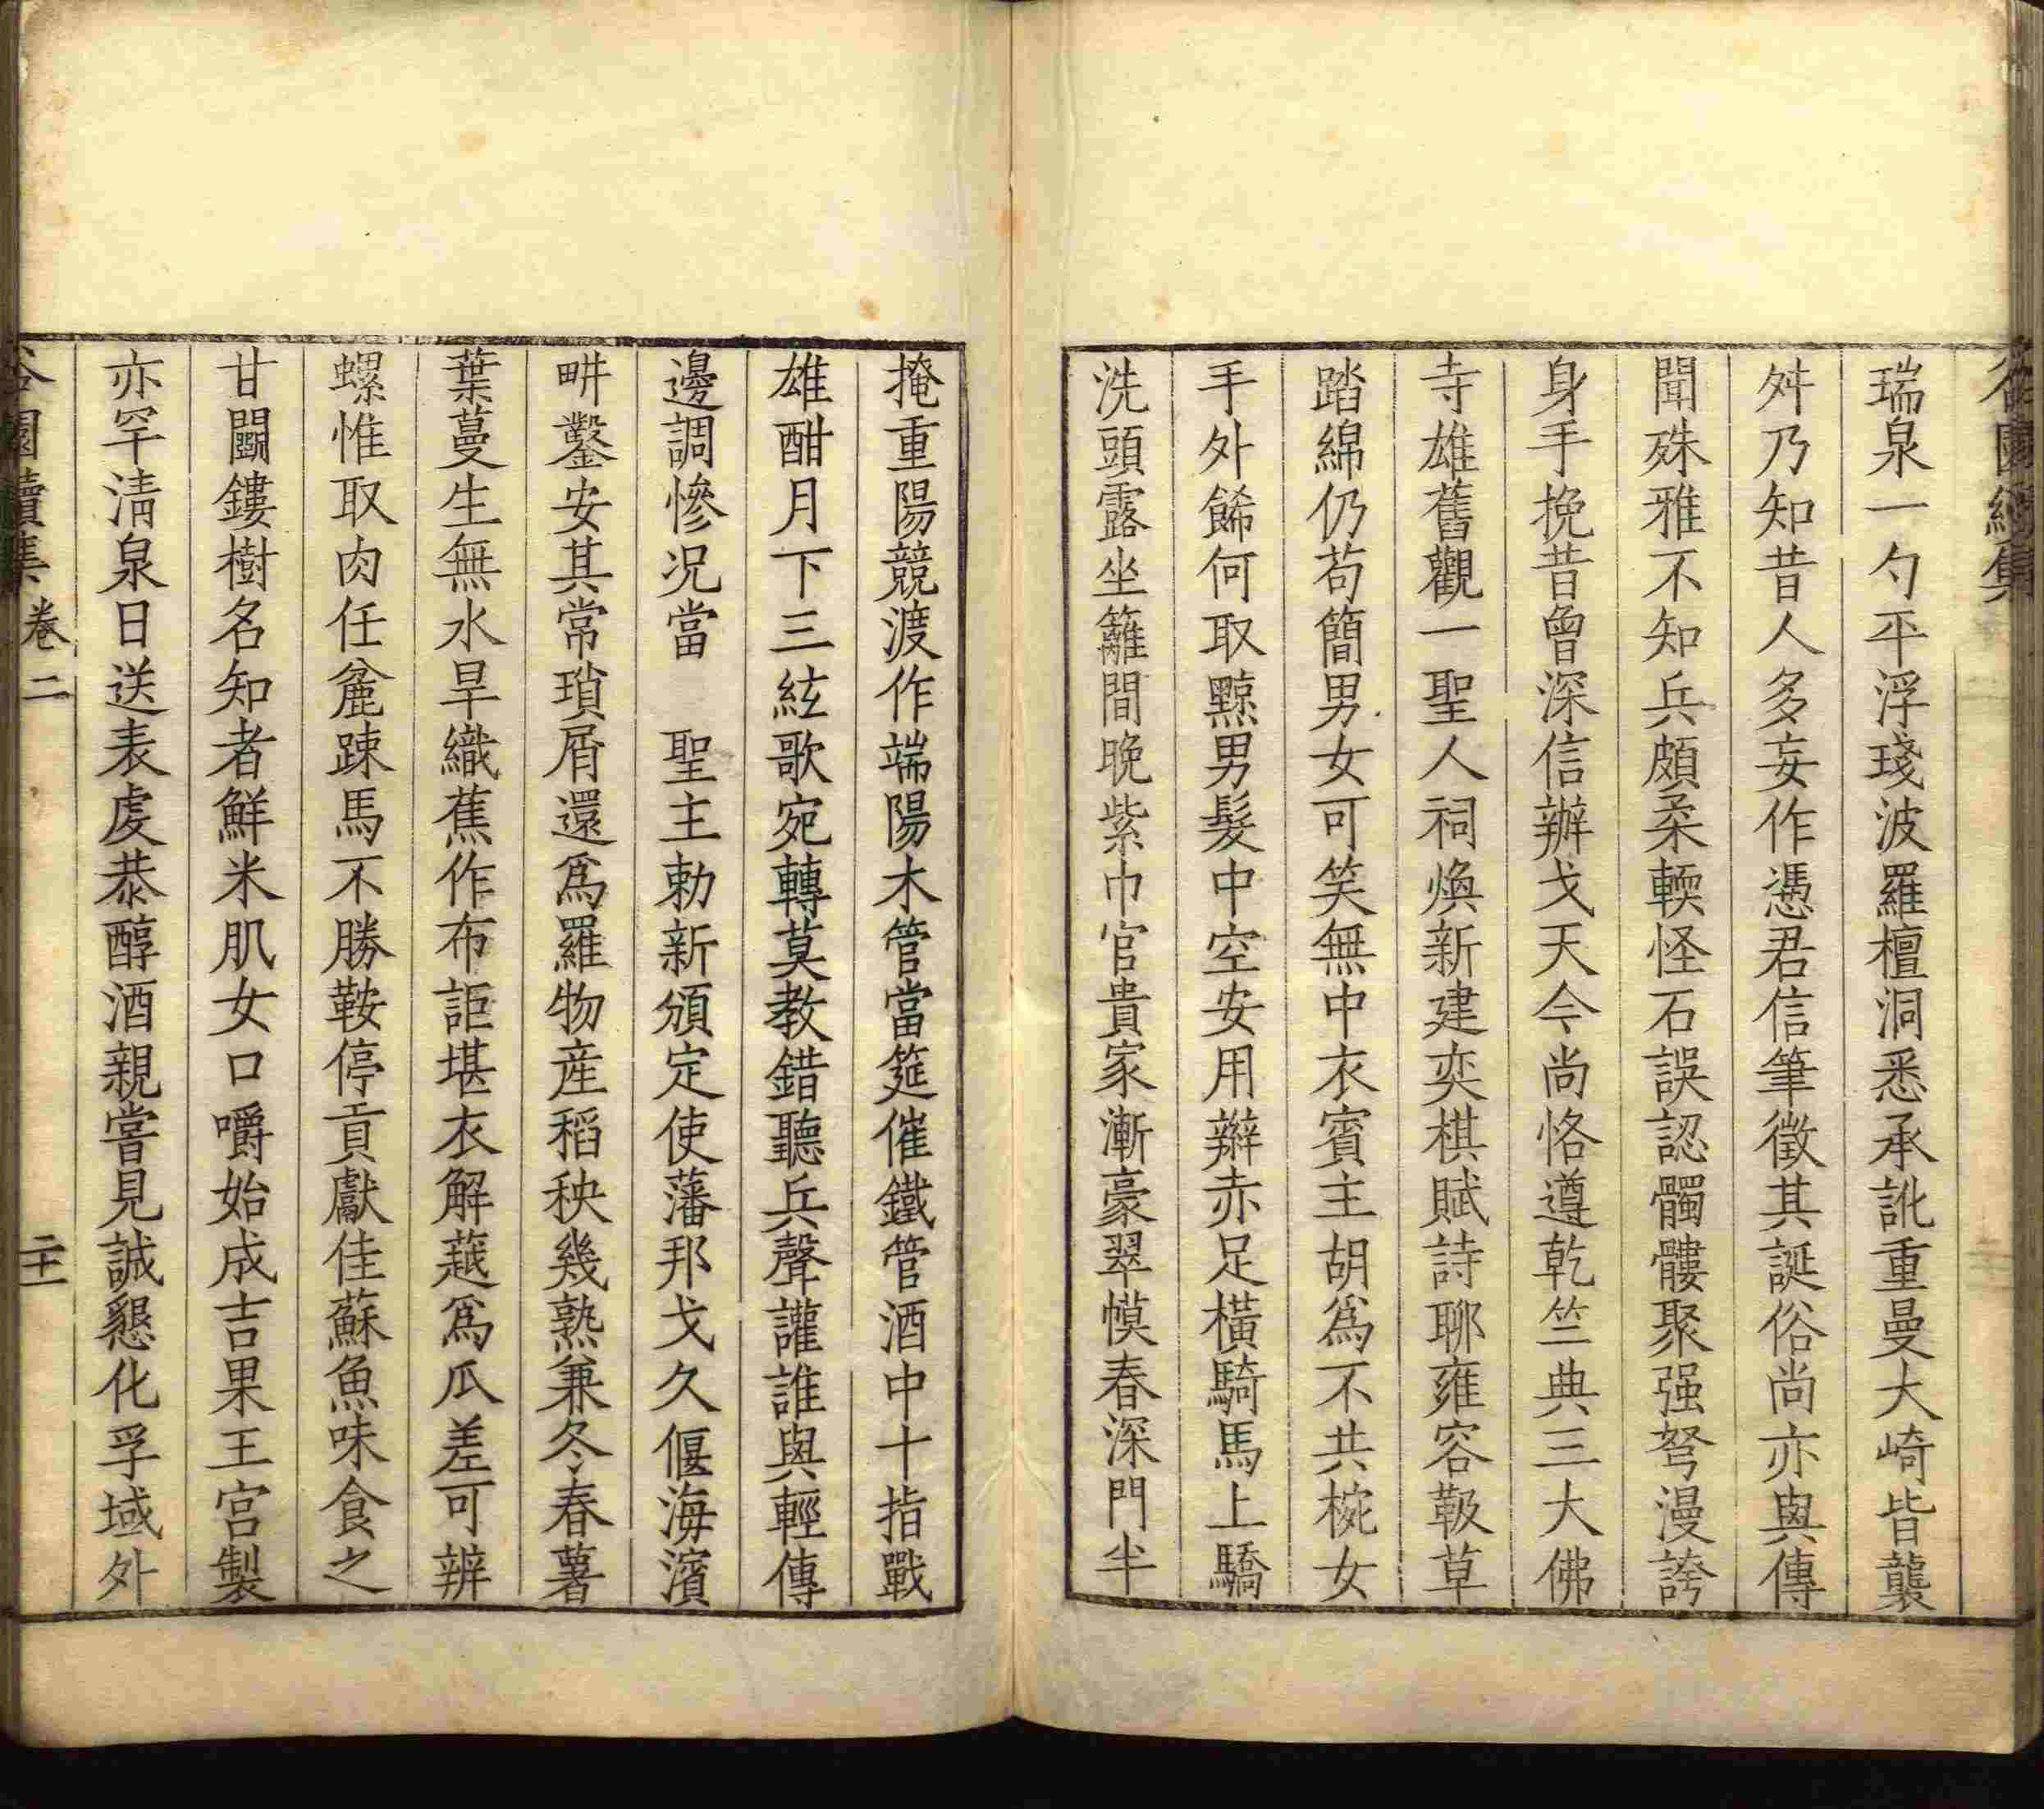 瑞泉一勺平浮琖波羅檀洞悉承訛重曼大崎皆襲
舛乃知昔人多妄作憑君信筆徵其誕俗尚亦與傳
聞殊雅不知兵頗柔輭怪石誤認髑髏聚强弩漫誇
身手挽昔曾深信辦戈天今尚恪遵乾竺典三大佛
寺雄舊觀一聖人祠煥新建奕棋賦詩聊雍容靸草
踏綿仍苟簡男女可笑無中衣賓主胡爲不共椀女
手外餙何取黥男髮中空安用辮赤足橫騎馬上驕
洗頭露坐籬間晚紫巾官貴家漸豪翠幙春深門半
掩重陽競渡作端陽木管當筵催鐵管酒中十指戰
雄酣月下三絃歌宛轉莫教錯聽兵聲讙誰與輕傳
邊調慘況當　聖主勅新頒定使藩邦戈久偃海濱
畊鑿安其常瑣屑還爲羅物産稻秧幾熟兼冬春薯
葉蔓生無水旱織蕉作布詎堪衣解蘧爲瓜差可辨
螺惟取肉任麄踈馬不勝鞍停貢獻佳蘇魚味食之
甘鬬鏤樹名知者鮮米肌女口嚼始成吉果王宮製
亦罕淸泉日送表虔恭醇酒親嘗見誠懇化孚域外
谷園續集 卷二 二十一